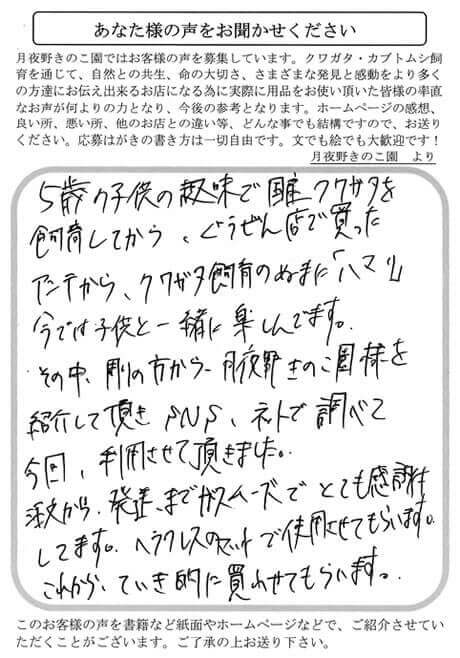 あなた様の声をお聞かせください
月夜野きのこ園ではお客様の声を募集しています。クワガタ・カブトムシ飼
育を通じて、自然との共生、命の大切さ、さまざまな発見と感動をより多く
の方達にお伝え出来るお店になる為に実際に用品をお使い頂いた皆様の率直
なお声が何よりの力となり、今後の参考となります。ホームページの感想、
良い所、悪い所、他のお店との違い等、どんな事でも結構ですので、お送り
ください。応募はがきの書き方は一切自由です。文でも絵でも大歓迎です！
月夜野きのこ園 より
5歳の子供の趣味で国産クワガタを
飼育してから、ぐうぜん店で買った
アンテから、クワガタ飼育のぬまに「ハマり」
今では子供と一緒に楽しんでます。
その中、剛の方から月夜野きのこ園様を
紹介して頂き SNS、ネットで調べて
今回、利用させて頂きました。
注文から、発送、までがスムーズで とても感謝
してます。ヘラクレスのマットで使用させてもらいます。
これから、ていき的に買わせてもらいます。
このお客様の声を書籍など紙面やホームページなどで、ご紹介させてい
ただくことがございます。ご了承の上お送り下さい。